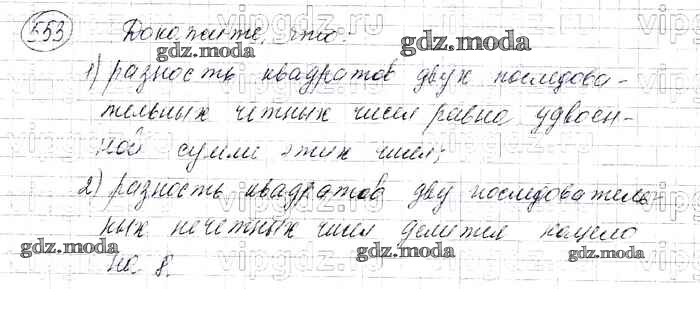 553 Докажите, что:
1) разность квадратов двух последова-
тельных четных чисел равна удвоен-
ной сумме этих чисел;
2) разность квадратов дву последователь-
ных нечетных чисел делится нацело
на 8.
gdz.moda
gdz.moda
gdz.moda
gdz.moda
gdz.moda
gdz.moda
vipgdz.ru